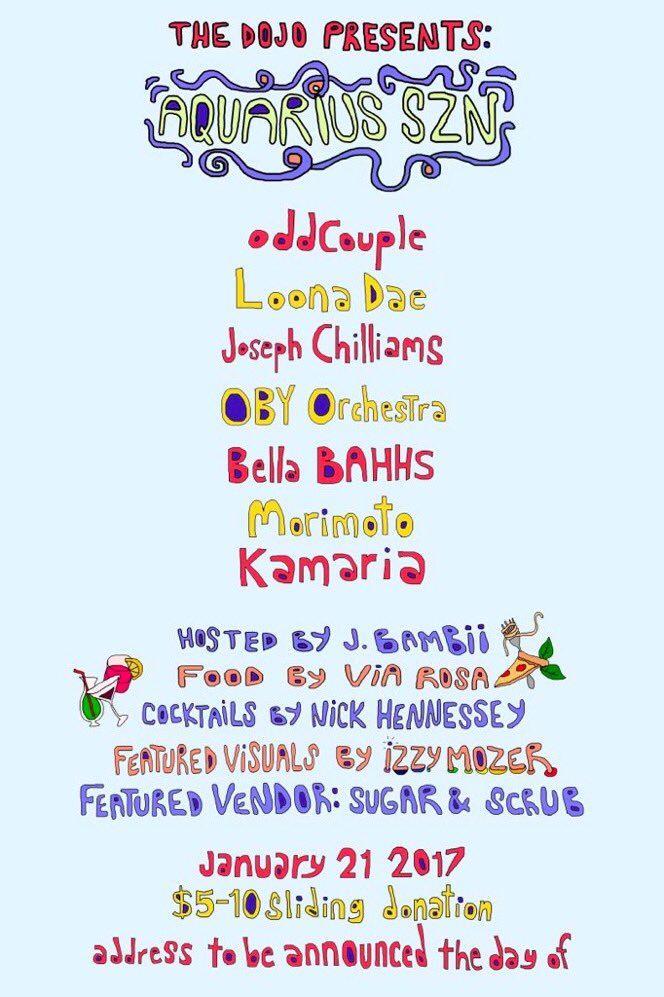 THE DOJO PRESENTS:
AQUARIUS SZN
oddCouple
Loona Dae
Joseph Chilliams
OBY Orchestra
Bella BAHHS
Morimoto
Kamaria
HOSTED BY J. BAMBii
FOOD BY ViA ROSA
COCKTAiLS BY NiCK HENNESSEY
FEATURED ViSUALS BY iZZY MOZER
FEATURED VENDOR: SUGAR & SCRUB
January 21 2017
$5-10 Sliding donation
address to be announced the day of